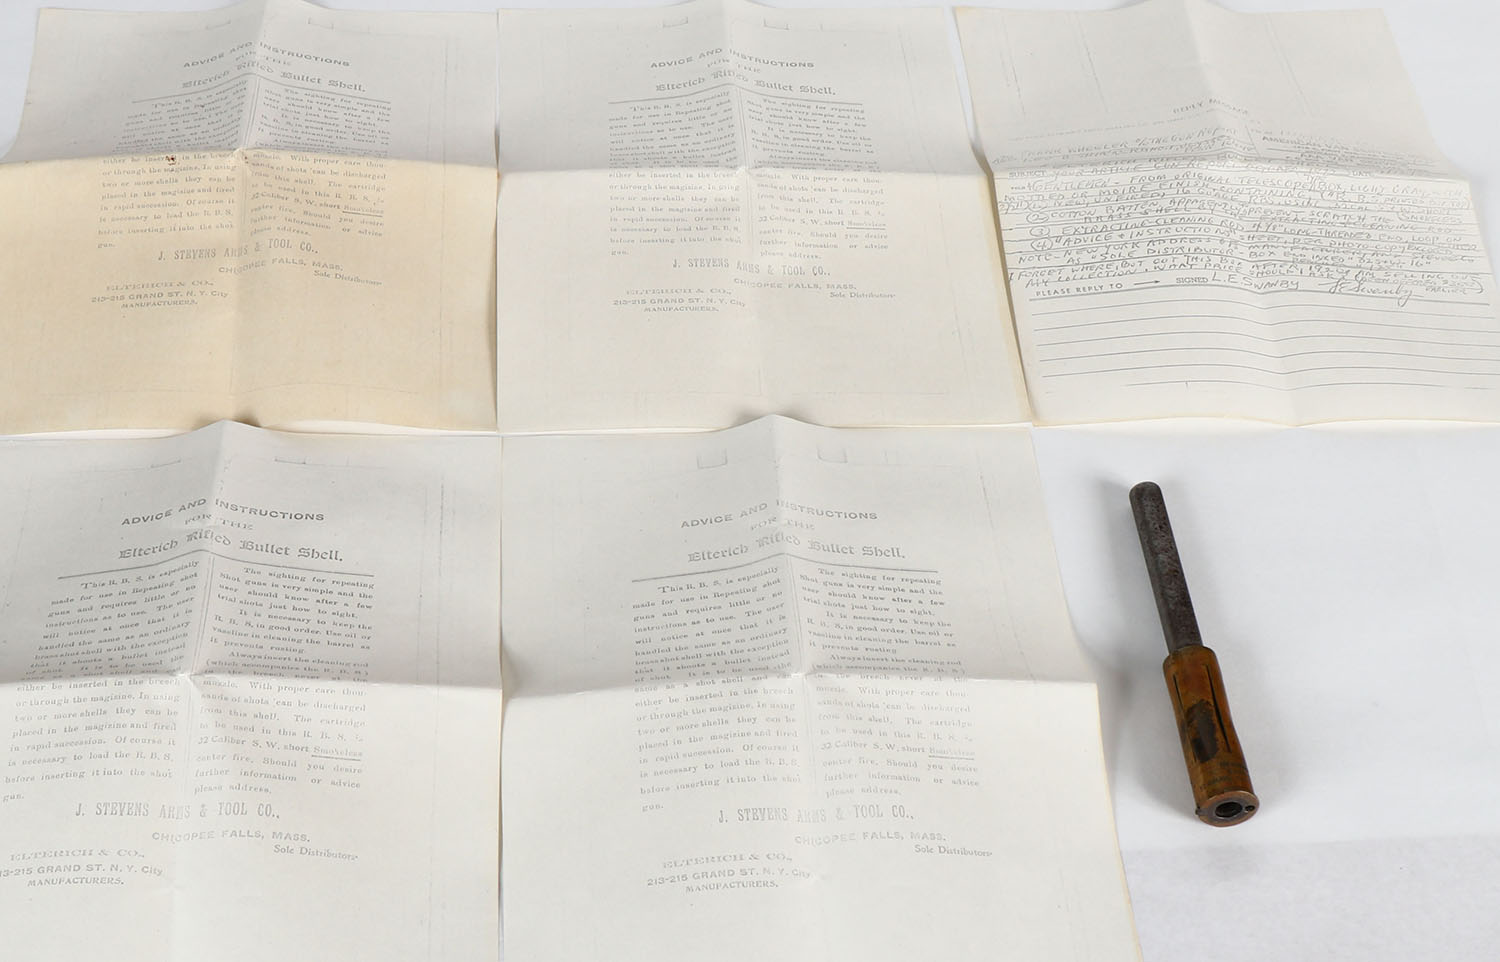 ADVICE AND INSTRUCTIONS
FOR THE
Elterich Rifled Bullet Shell.
This R. B. S. is especially
made for use in Repeating shot
guns and requires little or no
instructions as to use. The user
will notice at once that it is
handled the same as an ordinary
brass shot shell with the exception
that it shoots a bullet instead
either be inserted in the breech
or through the magizine. In using
two or more shells they can be
placed in the magizine and fired
in rapid succession. Of course it
is necessary to load the R. B. S.
before inserting it into the shot
gun.
The sighting for repeating
Shot guns is very simple and the
user should know after a few
trial shots just how to sight.
It is necessary to keep the
R. B. S. in good order. Use oil or
vaseline in cleaning the barrel as
it prevents rusting.
Always insert the cleaning rod
muzzle. With proper care thou-
sands of shots can be discharged
from this shell. The cartridge
to be used in this R. B. S. is
32 Caliber S. W. short Smokeless
center fire. Should you desire
further information or advice
please address.
J. STEVENS ARMS & TOOL CO.,
CHICOPEE FALLS, MASS.
Sole Distributors
ELTERICH & CO.,
213-215 GRAND ST. N. Y. City
MANUFACTURERS.
ADVICE AND INSTRUCTIONS
FOR THE
Elterich Rifled Bullet Shell.
This R. B. S. is especially
made for use in Repeating shot
guns and requires little or no
instructions as to use. The user
will notice at once that it is
handled the same as an ordinary
brass shot shell with the exception
that it shoots a bullet instead
either be inserted in the breech
or through the magizine. In using
two or more shells they can be
placed in the magizine and fired
in rapid succession. Of course it
is necessary to load the R. B. S.
before inserting it into the shot
gun.
The sighting for repeating
Shot guns is very simple and the
user should know after a few
trial shots just how to sight.
It is necessary to keep the
R. B. S. in good order. Use oil or
vaseline in cleaning the barrel as
it prevents rusting.
Always insert the cleaning rod
muzzle. With proper care thou-
sands of shots can be discharged
from this shell. The cartridge
to be used in this R. B. S. is
32 Caliber S. W. short Smokeless
center fire. Should you desire
further information or advice
please address.
J. STEVENS ARMS & TOOL CO.,
CHICOPEE FALLS, MASS.
Sole Distributors
ELTERICH & CO.,
213-215 GRAND ST. N. Y. City
MANUFACTURERS.
REPLY MESSAGE
FRANK WHEELER % THE GUN REPORT
SUBJECT YOUR ARTICLE DATE
GENTLEMEN - FROM ORIGINAL TELESCOPE BOX, LIGHT GRAY, WITH
MOTTLED OR MOIRE FINISH, CONTAINING
NEW, UNFIRED, 16 GUAGE RBS
(2) COTTON BATTEN, APPARENTLY TO PREVENT SCRATCH THE
BRASS SHELL
(3) EXTRACTING-CLEANING ROD 4 7/8" LONG-THREADED END, LOOP ON
(4) "ADVICE & INSTRUCTION" SHEET, PER PHOTO COPY ENCLOSED
NOTE - NEW YORK ADDRESS OF MANUFACTURER
AS "SOLE DISTRIBUTOR" BOX
I FORGET WHERE, BUT GOT THIS BOX AFTER AM SELLING OUT
MY COLLECTION, WHAT PRICE SHOULD I ASK
PLEASE REPLY TO SIGNED L. E. SWANBY
ADVICE AND INSTRUCTIONS
FOR THE
Elterich Rifled Bullet Shell.
This R. B. S. is especially
made for use in Repeating shot
guns and requires little or no
instructions as to use. The user
will notice at once that it is
handled the same as an ordinary
brass shot shell with the exception
that it shoots a bullet instead
of shot. It is to be used the
same as a shot shell and can
either be inserted in the breech
or through the magizine. In using
two or more shells they can be
placed in the magizine and fired
in rapid succession. Of course it
is necessary to load the R. B. S.
before inserting it into the shot
gun.
The sighting for repeating
Shot guns is very simple and the
user should know after a few
trial shots just how to sight.
It is necessary to keep the
R. B. S. in good order. Use oil or
vaseline in cleaning the barrel as
it prevents rusting.
Always insert the cleaning rod
(which accompanies the R. B. S.)
in the breech never at the
muzzle. With proper care thou-
sands of shots can be discharged
from this shell. The cartridge
to be used in this R. B. S. is
32 Caliber S. W. short Smokeless
center fire. Should you desire
further information or advice
please address.
J. STEVENS ARMS & TOOL CO.,
CHICOPEE FALLS, MASS.
Sole Distributors
ELTERICH & CO.,
213-215 GRAND ST. N. Y. City
MANUFACTURERS.
ADVICE AND INSTRUCTIONS
FOR THE
Elterich Rifled Bullet Shell.
This R. B. S. is especially
made for use in Repeating shot
guns and requires little or no
instructions as to use. The user
will notice at once that it is
handled the same as an ordinary
brass shot shell with the exception
that it shoots a bullet instead
of shot. It is to be used the
same as a shot shell and can
either be inserted in the breech
or through the magizine. In using
two or more shells they can be
placed in the magizine and fired
in rapid succession. Of course it
is necessary to load the R. B. S.
before inserting it into the shot
gun.
The sighting for repeating
Shot guns is very simple and the
user should know after a few
trial shots just how to sight.
It is necessary to keep the
R. B. S. in good order. Use oil or
vaseline in cleaning the barrel as
it prevents rusting.
Always insert the cleaning rod
(which accompanies the R. B. S.)
in the breech never at the
muzzle. With proper care thou-
sands of shots can be discharged
from this shell. The cartridge
to be used in this R. B. S. is
32 Caliber S. W. short Smokeless
center fire. Should you desire
further information or advice
please address.
J. STEVENS ARMS & TOOL CO.,
CHICOPEE FALLS, MASS.
Sole Distributors
ELTERICH & CO.,
213-215 GRAND ST. N. Y. City
MANUFACTURERS.